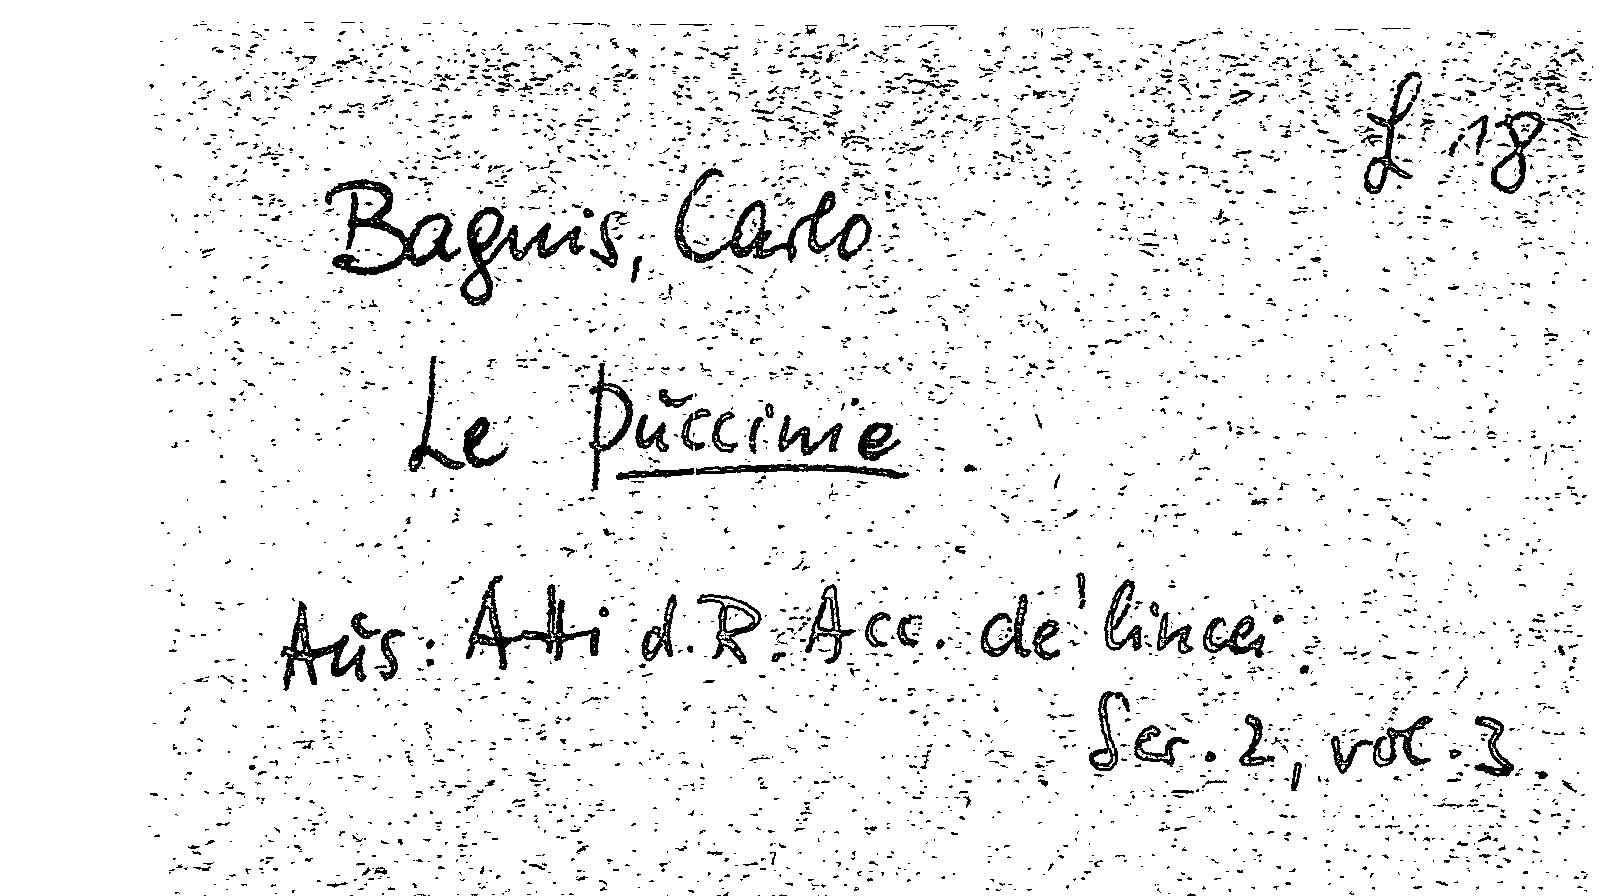 L 18
Bagnis, Carlo
Le Puccinie.
Aus: Atti d. R. Acc. de' lincei.
Ser. 2, vol. 3.